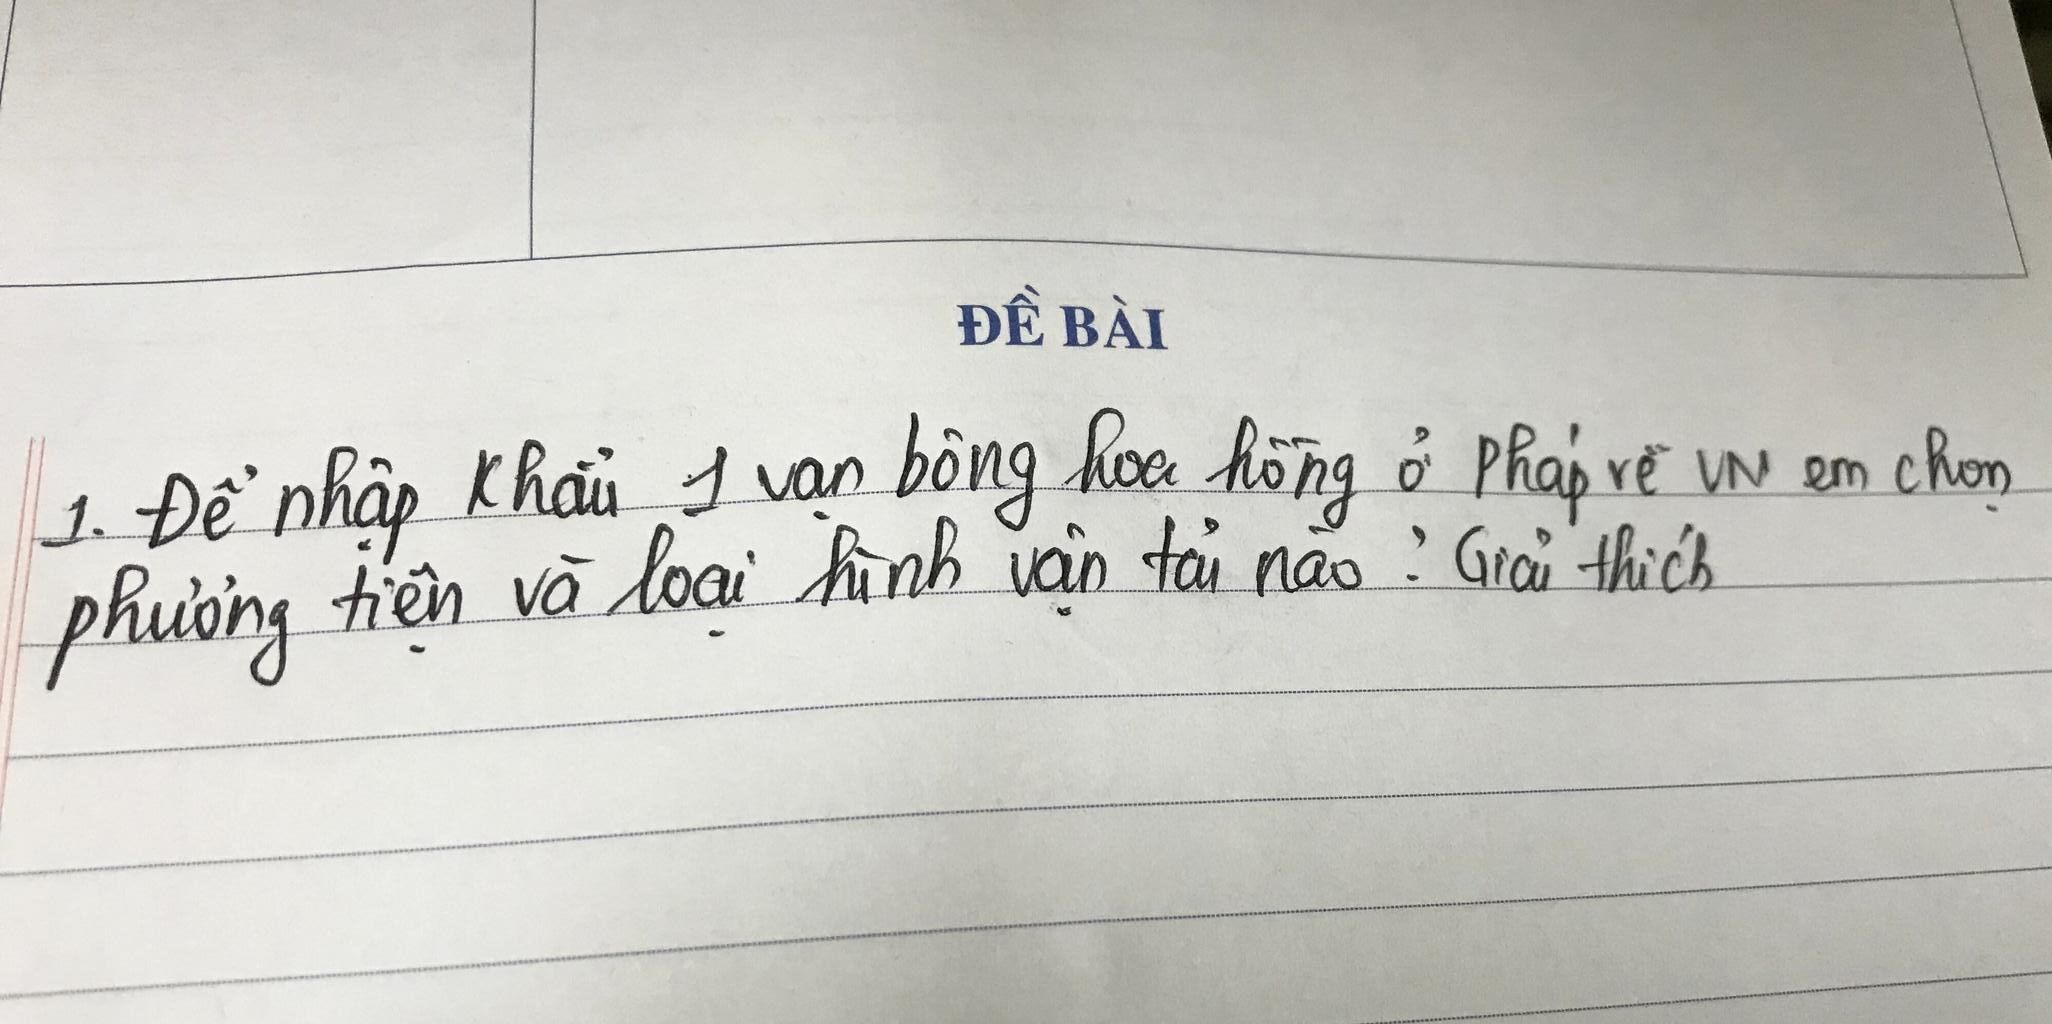 ĐỀ BÀI
1. Để nhập khẩu 1 vạn bông hoa hồng ở Pháp về VN em chọn
phương tiện và loại hình vận tải nào? Giải thích